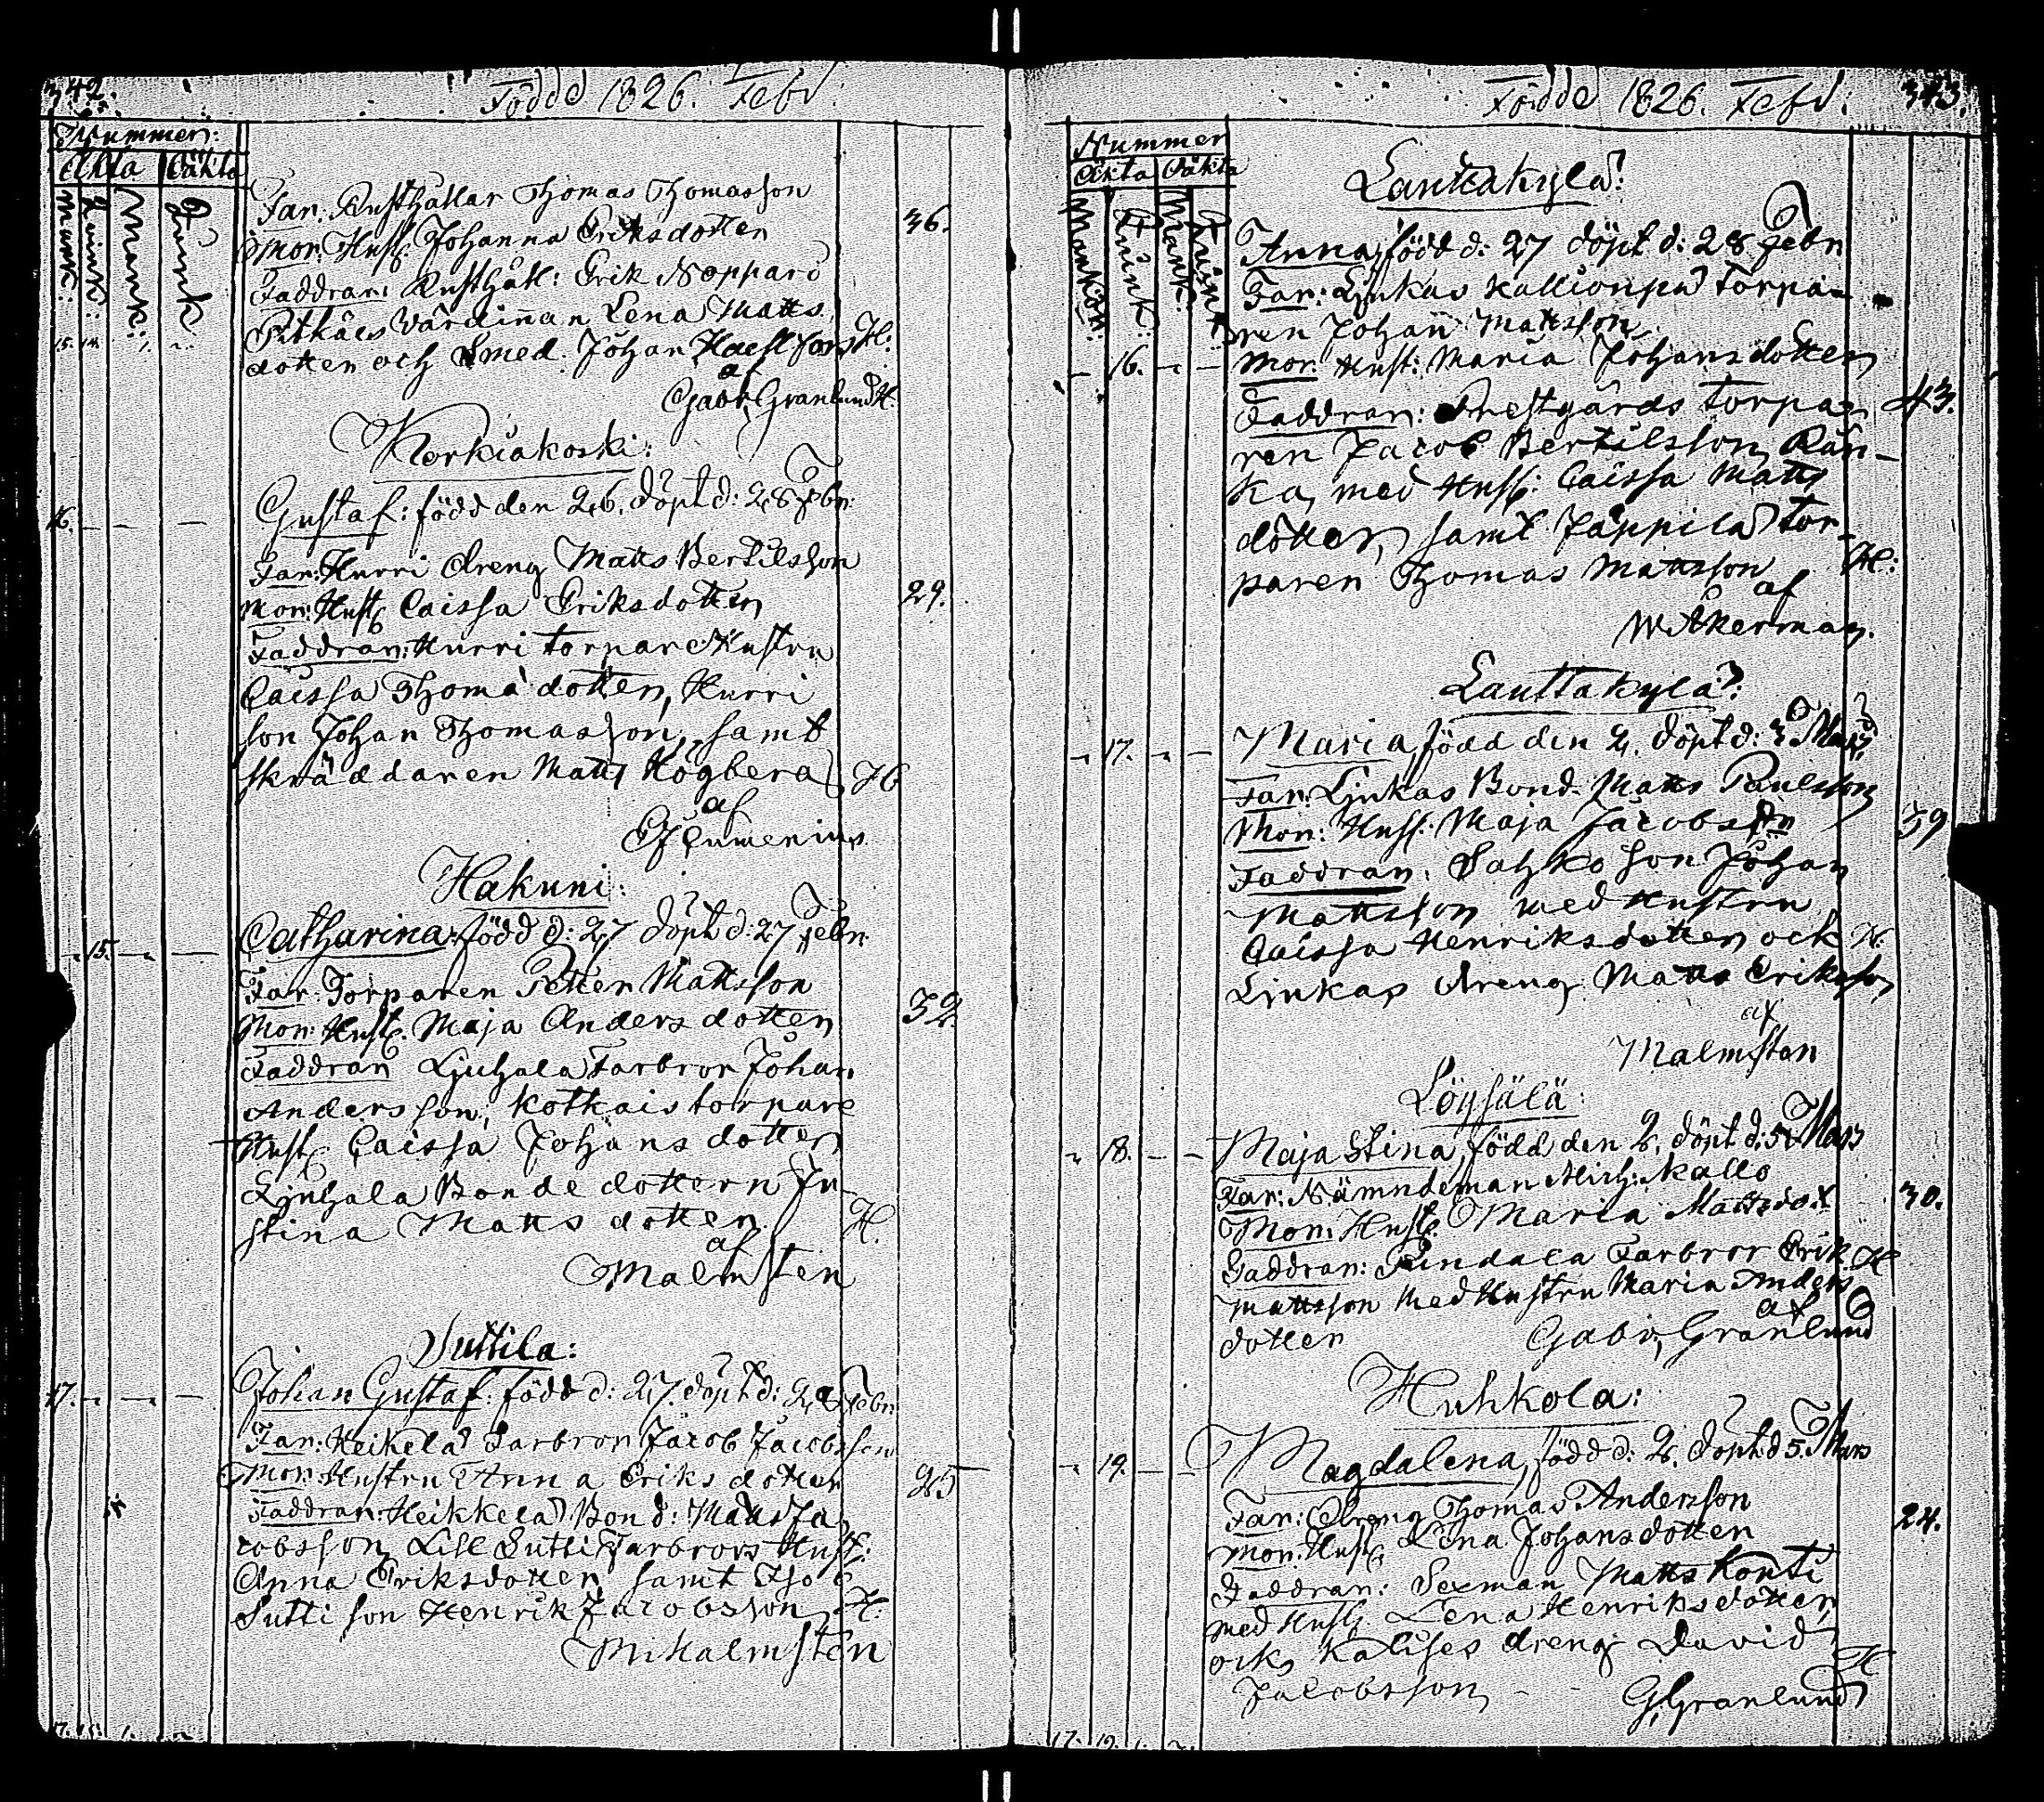 342.
Födde 1826. Febr:
Nummer:
Äkta Oäkta
Mank: Quink: Mank: Quink:
Far: Rusthållar Thomas Thomasson
Mor: Hust: Johanna Eriksdotter
36.
Faddrar: Rusthåll: Erik Noppari
Pitkäis Värdinnan Lena Matts
15. 14. 1. 2.
dotter och Smed. Johan H:
af
Gabr. Granlund H.
Korkiakoski:
Gustaf: född den 26. döpt d: 28 Febr:
16. - - -
Far: Hurri dreng Matts Bertilsson
Mor: Hust. Caissa Eriksdotter
29.
Faddrar: Hurri torpare Hustru
Caissa Thomæ dotter, Hurri
son Johan Thomasson, samt
skräddaren Matts Högberg H
af
Hakuni:
Catharina: född d: 27 döpt d: 27 Febr:
- 15. - -
Far: Torparen Petter Mattsson
Mor: Hust. Maja Anders dotter
32.
Faddrar Ljuhala Farbror Johan
Andersson, Kotkais torpare
Hust. Caissa Johans dotter
Ljuhala Bonde dottern Ju-
stina Matts dotter. H.
af
Malmsten
Suttila:
Johan Gustaf: född d: 27. döpt d: 28 Febr:
17. - - -
Far: Heikelä Farbror Jacob Jacobsson
Mor: Hustru Anna Eriks dotter
25
Faddrar: Heikkelä Bond: Matts Ja
cobsson, Lill Sutti Farbrors Hust:
Anna Eriksdotter, samt Iso
Sutti son Henrik Jacobsson H:
Malmsten
17. 15. 1. 2.
Födde 1826. Febr: 343.
Nummer
Äkta Oäkta
Mankön: Quink: Mank: Quink:
Lauttakylä:
Anna, född d: 27 döpt d: 28 Febr:
Far: Ljukas Kallionpää torpa-
ren Johan Mattsson
- 16. - - Mor: Hust: Maria Johansdotter
Faddrar: Prestgårds torpa- 43.
ren Jacob Bertilsson Rän-
kä, med Hust: Caissa Matts
dotter, samt Jäppilä tor-
paren Thomas Mattsson H:
af
W Åkerman.
Lauttakylä:
- 17. - - Maria, född den 2. döpt d: 3 Mars
Far: Ljukas Bond. Matts Paulsson
Mor: Hust: Maja Jacobsdr
39
Faddrar: Sahko son Johan
Mattsson med Hustru
Caissa Henriksdotter och H:
Ljukas dreng Matts Eriksson
af
Malmsten
Löysälä:
- 18. - - Maja Stina, född den 2. döpt d: 5 Mars
Far: Nämndeman Mich: Kallo
30.
Mor: Hust. Maria Mattsdot.
Faddrar: Pendala Farbror Erik H
Mattsson med Hustru Maria Anders
dotter af
Gabr. Granlund
Huhkola:
- 19. - - Magdalena, född d: 2. döpt d 5. Mars
Far: dreng Thomas Andersson
24.
Mor: Hust. Lena Johansdotter
Faddrar: Sexman Matts Konti
med Hust. Lena Henriksdotter
och Kalises dreng David
Jacobsson, - - H
G. Granlund
17. 19. 1. 2.